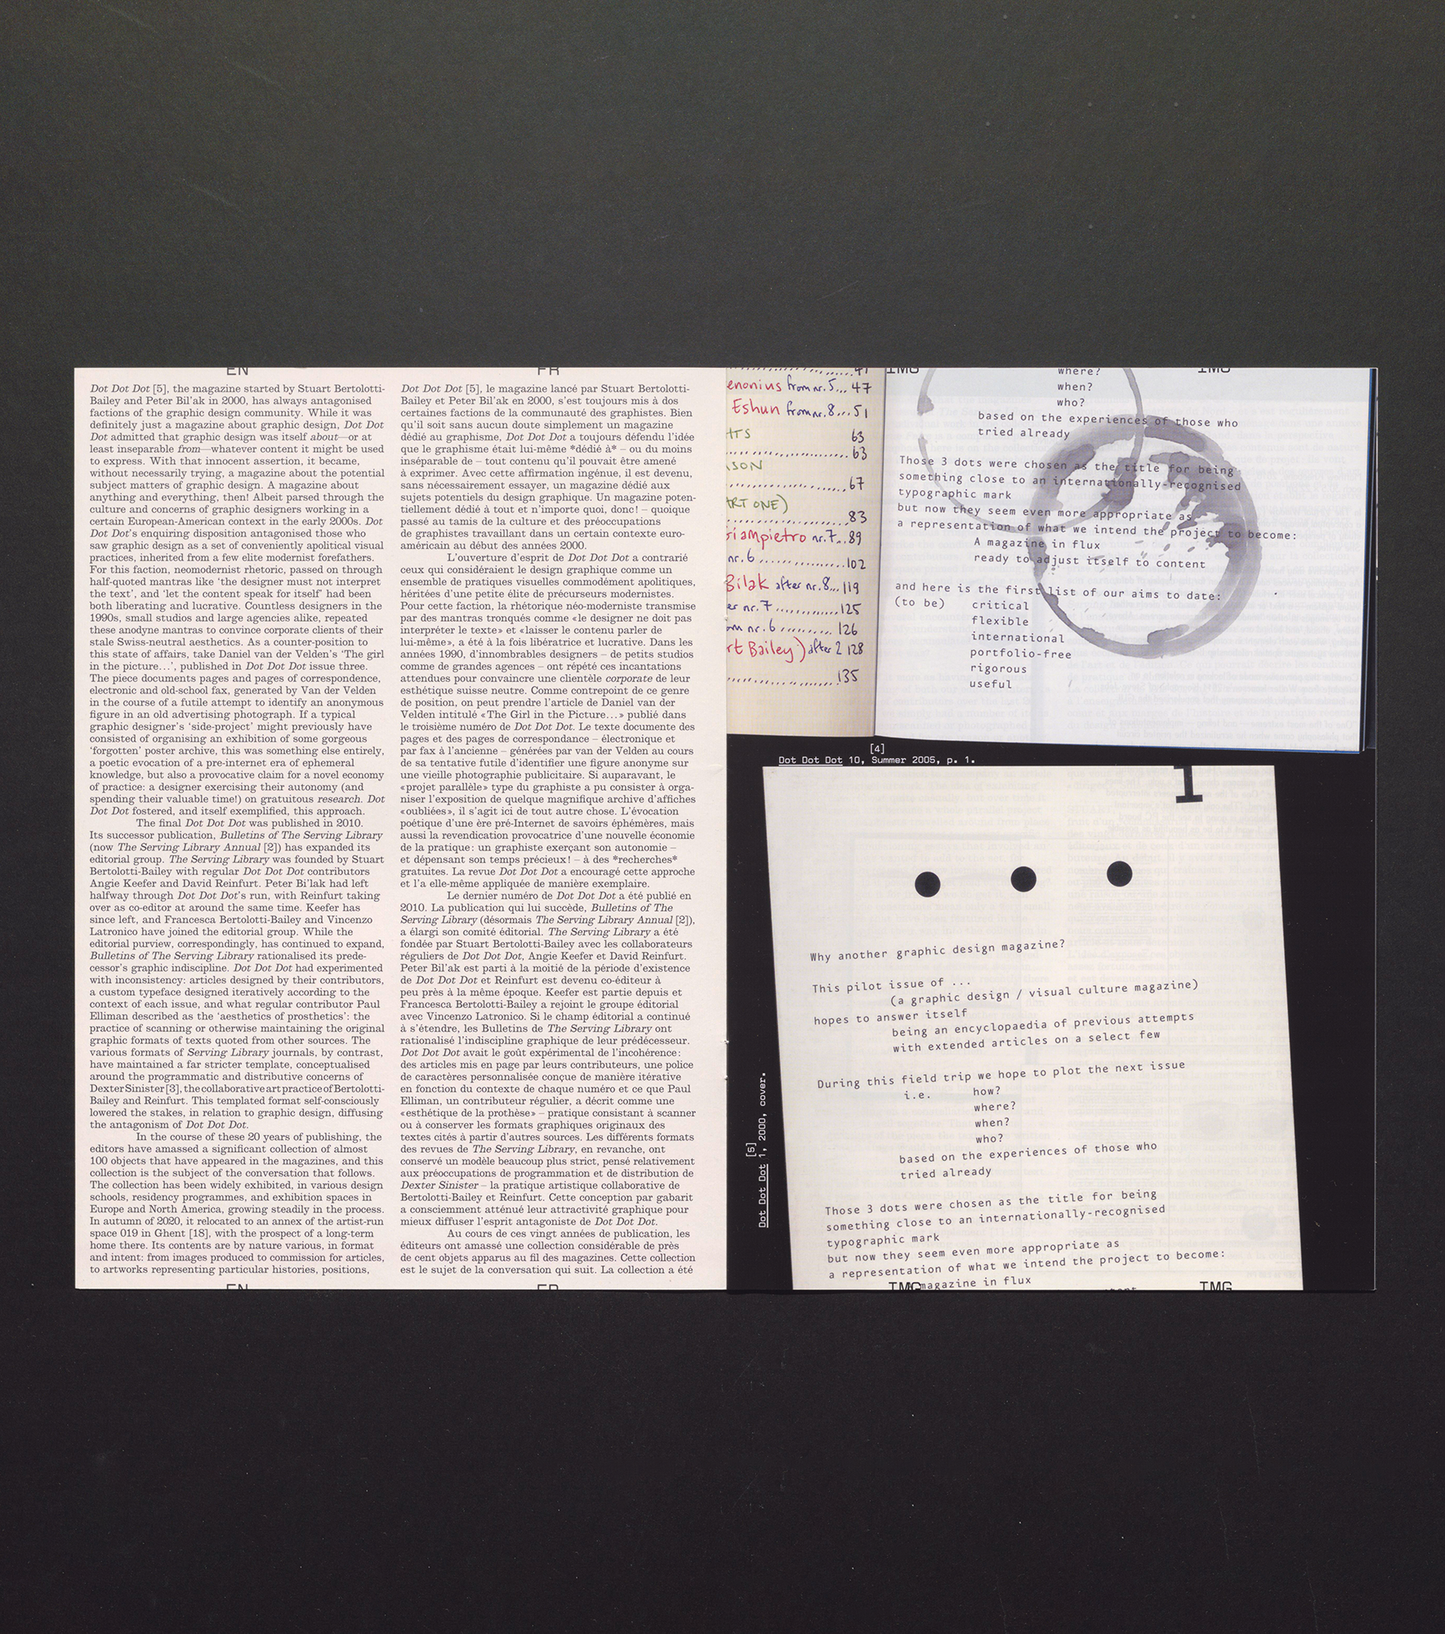 EN
Dot Dot Dot [5], the magazine started by Stuart Bertolotti-
Bailey and Peter Bil’ak in 2000, has always antagonised
factions of the graphic design community. While it was
definitely just a magazine about graphic design, Dot Dot
Dot admitted that graphic design was itself about—or at
least inseparable from—whatever content it might be used
to express. With that innocent assertion, it became,
without necessarily trying, a magazine about the potential
subject matters of graphic design. A magazine about
anything and everything, then! Albeit parsed through the
culture and concerns of graphic designers working in a
certain European-American context in the early 2000s. Dot
Dot Dot’s enquiring disposition antagonised those who
saw graphic design as a set of conveniently apolitical visual
practices, inherited from a few elite modernist forefathers.
For this faction, neomodernist rhetoric, passed on through
half-quoted mantras like ‘the designer must not interpret
the text’, and ‘let the content speak for itself’ had been
both liberating and lucrative. Countless designers in the
1990s, small studios and large agencies alike, repeated
these anodyne mantras to convince corporate clients of their
stale Swiss-neutral aesthetics. As a counter-position to
this state of affairs, take Daniel van der Velden’s ‘The girl
in the picture…’, published in Dot Dot Dot issue three.
The piece documents pages and pages of correspondence,
electronic and old-school fax, generated by Van der Velden
in the course of a futile attempt to identify an anonymous
figure in an old advertising photograph. If a typical
graphic designer’s ‘side-project’ might previously have
consisted of organising an exhibition of some gorgeous
‘forgotten’ poster archive, this was something else entirely,
a poetic evocation of a pre-internet era of ephemeral
knowledge, but also a provocative claim for a novel economy
of practice: a designer exercising their autonomy (and
spending their valuable time!) on gratuitous research. Dot
Dot Dot fostered, and itself exemplified, this approach.
The final Dot Dot Dot was published in 2010.
Its successor publication, Bulletins of The Serving Library
(now The Serving Library Annual [2]) has expanded its
editorial group. The Serving Library was founded by Stuart
Bertolotti-Bailey with regular Dot Dot Dot contributors
Angie Keefer and David Reinfurt. Peter Bi’lak had left
halfway through Dot Dot Dot’s run, with Reinfurt taking
over as co-editor at around the same time. Keefer has
since left, and Francesca Bertolotti-Bailey and Vincenzo
Latronico have joined the editorial group. While the
editorial purview, correspondingly, has continued to expand,
Bulletins of The Serving Library rationalised its prede-
cessor’s graphic indiscipline. Dot Dot Dot had experimented
with inconsistency: articles designed by their contributors,
a custom typeface designed iteratively according to the
context of each issue, and what regular contributor Paul
Elliman described as the ‘aesthetics of prosthetics’: the
practice of scanning or otherwise maintaining the original
graphic formats of texts quoted from other sources. The
various formats of Serving Library journals, by contrast,
have maintained a far stricter template, conceptualised
around the programmatic and distributive concerns of
Dexter Sinister [3], the collaborative art practice of Bertolotti-
Bailey and Reinfurt. This templated format self-consciously
lowered the stakes, in relation to graphic design, diffusing
the antagonism of Dot Dot Dot.
In the course of these 20 years of publishing, the
editors have amassed a significant collection of almost
100 objects that have appeared in the magazines, and this
collection is the subject of the conversation that follows.
The collection has been widely exhibited, in various design
schools, residency programmes, and exhibition spaces in
Europe and North America, growing steadily in the process.
In autumn of 2020, it relocated to an annex of the artist-run
space 019 in Ghent [18], with the prospect of a long-term
home there. Its contents are by nature various, in format
and intent: from images produced to commission for articles,
to artworks representing particular histories, positions,
EN
FR
Dot Dot Dot [5], le magazine lancé par Stuart Bertolotti-
Bailey et Peter Bil’ak en 2000, s’est toujours mis à dos
certaines factions de la communauté des graphistes. Bien
qu’il soit sans aucun doute simplement un magazine
dédié au graphisme, Dot Dot Dot a toujours défendu l’idée
que le graphisme était lui-même *dédié à* – ou du moins
inséparable de – tout contenu qu’il pouvait être amené
à exprimer. Avec cette affirmation ingénue, il est devenu,
sans nécessairement essayer, un magazine dédié aux
sujets potentiels du design graphique. Un magazine poten-
tiellement dédié à tout et n’importe quoi, donc! – quoique
passé au tamis de la culture et des préoccupations
de graphistes travaillant dans un certain contexte euro-
américain au début des années 2000.
L’ouverture d’esprit de Dot Dot Dot a contrarié
ceux qui considéraient le design graphique comme un
ensemble de pratiques visuelles commodément apolitiques,
héritées d’une petite élite de précurseurs modernistes.
Pour cette faction, la rhétorique néo-moderniste transmise
par des mantras tronqués comme «le designer ne doit pas
interpréter le texte» et «laisser le contenu parler de
lui-même», a été à la fois libératrice et lucrative. Dans les
années 1990, d’innombrables designers – de petits studios
comme de grandes agences – ont répété ces incantations
attendues pour convaincre une clientèle corporate de leur
esthétique suisse neutre. Comme contrepoint de ce genre
de position, on peut prendre l’article de Daniel van der
Velden intitulé «The Girl in the Picture…» publié dans
le troisième numéro de Dot Dot Dot. Le texte documente des
pages et des pages de correspondance – électronique et
par fax à l’ancienne – générées par van der Velden au cours
de sa tentative futile d’identifier une figure anonyme sur
une vieille photographie publicitaire. Si auparavant, le
«projet parallèle» type du graphiste a pu consister à orga-
niser l’exposition de quelque magnifique archive d’affiches
«oubliées», il s’agit ici de tout autre chose. L’évocation
poétique d’une ère pré-Internet de savoirs éphémères, mais
aussi la revendication provocatrice d’une nouvelle économie
de la pratique: un graphiste exerçant son autonomie –
et dépensant son temps précieux! – à des *recherches*
gratuites. La revue Dot Dot Dot a encouragé cette approche
et l’a elle-même appliquée de manière exemplaire.
Le dernier numéro de Dot Dot Dot a été publié en
2010. La publication qui lui succède, Bulletins of The
Serving Library (désormais The Serving Library Annual [2]),
a élargi son comité éditorial. The Serving Library a été
fondée par Stuart Bertolotti-Bailey avec les collaborateurs
réguliers de Dot Dot Dot, Angie Keefer et David Reinfurt.
Peter Bil’ak est parti à la moitié de la période d’existence
de Dot Dot Dot et Reinfurt est devenu co-éditeur à
peu près à la même époque. Keefer est partie depuis et
Francesca Bertolotti-Bailey a rejoint le groupe éditorial
avec Vincenzo Latronico. Si le champ éditorial a continué
à s’étendre, les Bulletins de The Serving Library ont
rationalisé l’indiscipline graphique de leur prédécesseur.
Dot Dot Dot avait le goût expérimental de l’incohérence:
des articles mis en page par leurs contributeurs, une police
de caractères personnalisée conçue de manière itérative
en fonction du contexte de chaque numéro et ce que Paul
Elliman, un contributeur régulier, a décrit comme une
«esthétique de la prothèse» – pratique consistant à scanner
ou à conserver les formats graphiques originaux des
textes cités à partir d’autres sources. Les différents formats
des revues de The Serving Library, en revanche, ont
conservé un modèle beaucoup plus strict, pensé relativement
aux préoccupations de programmation et de distribution de
Dexter Sinister – la pratique artistique collaborative de
Bertolotti-Bailey et Reinfurt. Cette conception par gabarit
a consciemment atténué leur attractivité graphique pour
mieux diffuser l’esprit antagoniste de Dot Dot Dot.
Au cours de ces vingt années de publication, les
éditeurs ont amassé une collection considérable de près
de cent objets apparus au fil des magazines. Cette collection
est le sujet de la conversation qui suit. La collection a été
FR
enonius from nr. 5... 47
Eshun from nr. 8... 51
HTS 63
63
SON
67
ART ONE)
83
iampietro nr. 7.. 89
nr. 6 ............ 102
Bilak after nr. 8... 119
er nr. 7 ............ 125
om nr. 6 .......... 126
rt Bailey) after 2 128
135
IMG
IMG
where?
when?
who?
based on the experiences of those who
tried already
Those 3 dots were chosen as the title for being
something close to an internationally-recognised
typographic mark
but now they seem even more appropriate as
a representation of what we intend the project to become:
A magazine in flux
ready to adjust itself to content
and here is the first list of our aims to date:
(to be) critical
flexible
international
portfolio-free
rigorous
useful
[4]
Dot Dot Dot 10, Summer 2005, p. 1.
[5]
Dot Dot Dot 1, 2000, cover.
1
Why another graphic design magazine?
This pilot issue of ...
(a graphic design / visual culture magazine)
hopes to answer itself
being an encyclopaedia of previous attempts
with extended articles on a select few
During this field trip we hope to plot the next issue
i.e. how?
where?
when?
who?
based on the experiences of those who
tried already
Those 3 dots were chosen as the title for being
something close to an internationally-recognised
typographic mark
but now they seem even more appropriate as
a representation of what we intend the project to become:
magazine in flux
IMG
IMG